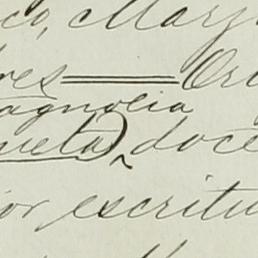 co, Mary
res == Ori
agnolia
uela) doce
or escritu